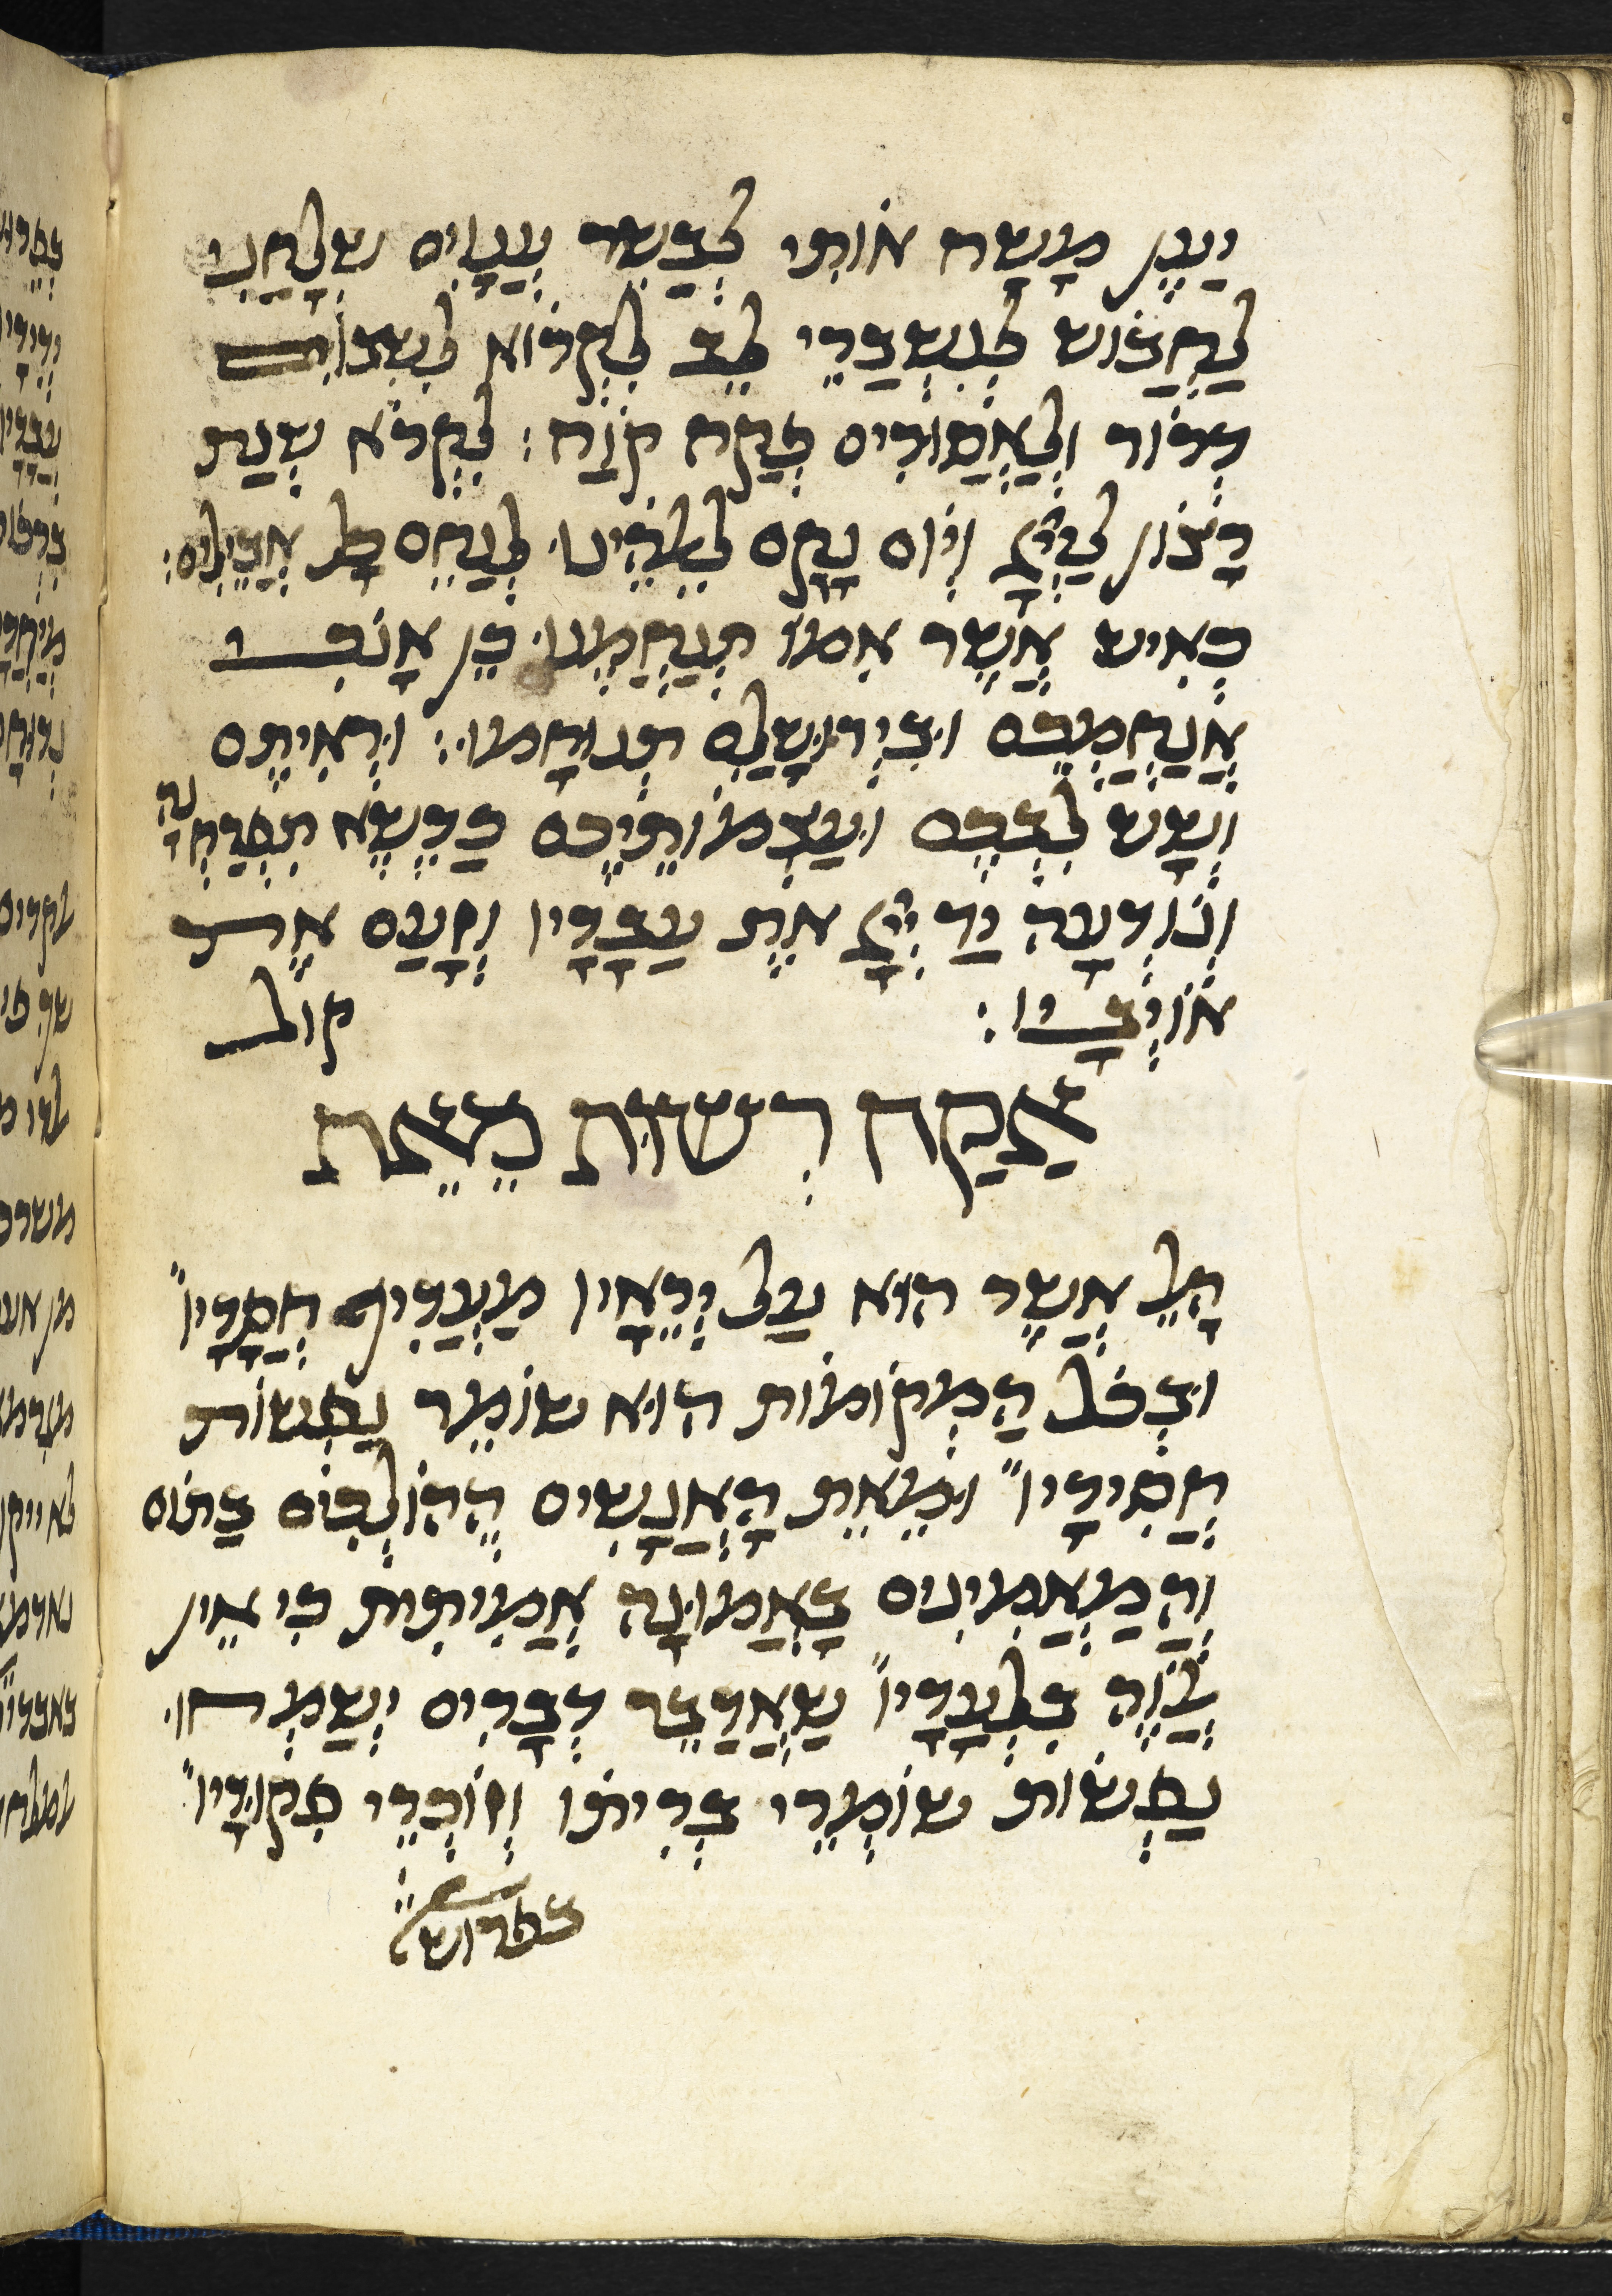 יַעַן מָשַׁח אוֹתִי לְבַשֵּׂר עֲנָוִים שְׁלָחַנִי
לַחְבּוֹשׁ לְנִשְׁבְּרֵי לֵב לִקְרוֹא לִשְׁבוּיִם
דְּרוֹר וְלַאֲסוּרִים פְּקַח קוֹחַ׃ לִקְרֹא שְׁנַת
רָצוֹן לַייָ וְיוֹם נָקָם לֵלֹהֵינוּ לְנַחֵם כָּל אֲבֵילִים׃
כְּאִישׁ אֲשֶׁר אִמּוֹ תְּנַחֲמֶנּוּ כֵּן אָנֹכִי
אֲנַחֲמְכֶם וּבִירוּשָׁלַםִ תְּנוּחָמוּ׃ וּרְאִיתֶם
וְשָׂשׂ לִבְּכֶם וְעַצְמוֹתֵיכֶם כַּדֶּשֶׁא תִפְרַחְנָה
וְנוֹדְעָה יַד יְיָ אֶת עֲבָדָיו וְזָעַם אֶת
אוֹיְבָיו׃ קול
אֶקַּח רִשׁוּת מֵאֵת
הָאֵל אֲשֶׁר הוּא עַל יְרֵאָיו מַעֲדִיף חֲסָדָיו
וּבְכֹל הַמְּקוֹמוֹת הוּא שׁוֹמֵר נַפְשׁוֹת
חֲסִידָיו וּמֵאֵת הָאֲנָשִׁים הַהוֹלְכִים בַּתּוֹם
וְהַמַּאֲמִינִים בָּאֱמוּנָה אֲמִיתִית כִּי אֵין
בִּלְעָדָיו שֶׁאֲדַבֵּר דְּבָרִים יְשַׂמְּחוּ
נַפְשׁוֹת שׁוֹמְרֵי בְּרִיתוֹ וְזוֹכְרֵי פִקּוּדָיו
בפרוש